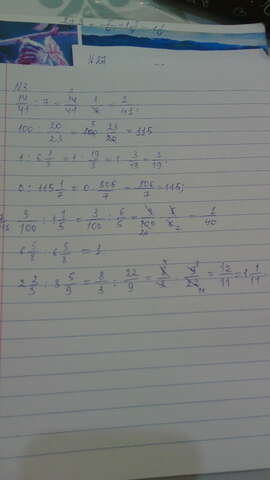 N27
N3
14/41 : 7 = 14/41 · 1/7 = 2/41;
100 : 20/23 = 100 · 23/20 = 115
1 : 6 1/3 = 1 : 19/3 = 1 · 3/19 = 3/19;
0 : 115 1/7 = 0 · 806/7 = 806/7 = 115;
3/100 : 1 1/5 = 3/100 : 6/5 = 3/100 · 5/6 = 1/40
6 5/8 : 6 5/8 = 1
2 2/3 : 3 5/9 = 8/3 : 22/9 = 8/3 · 9/22 = 12/11 = 1 1/11